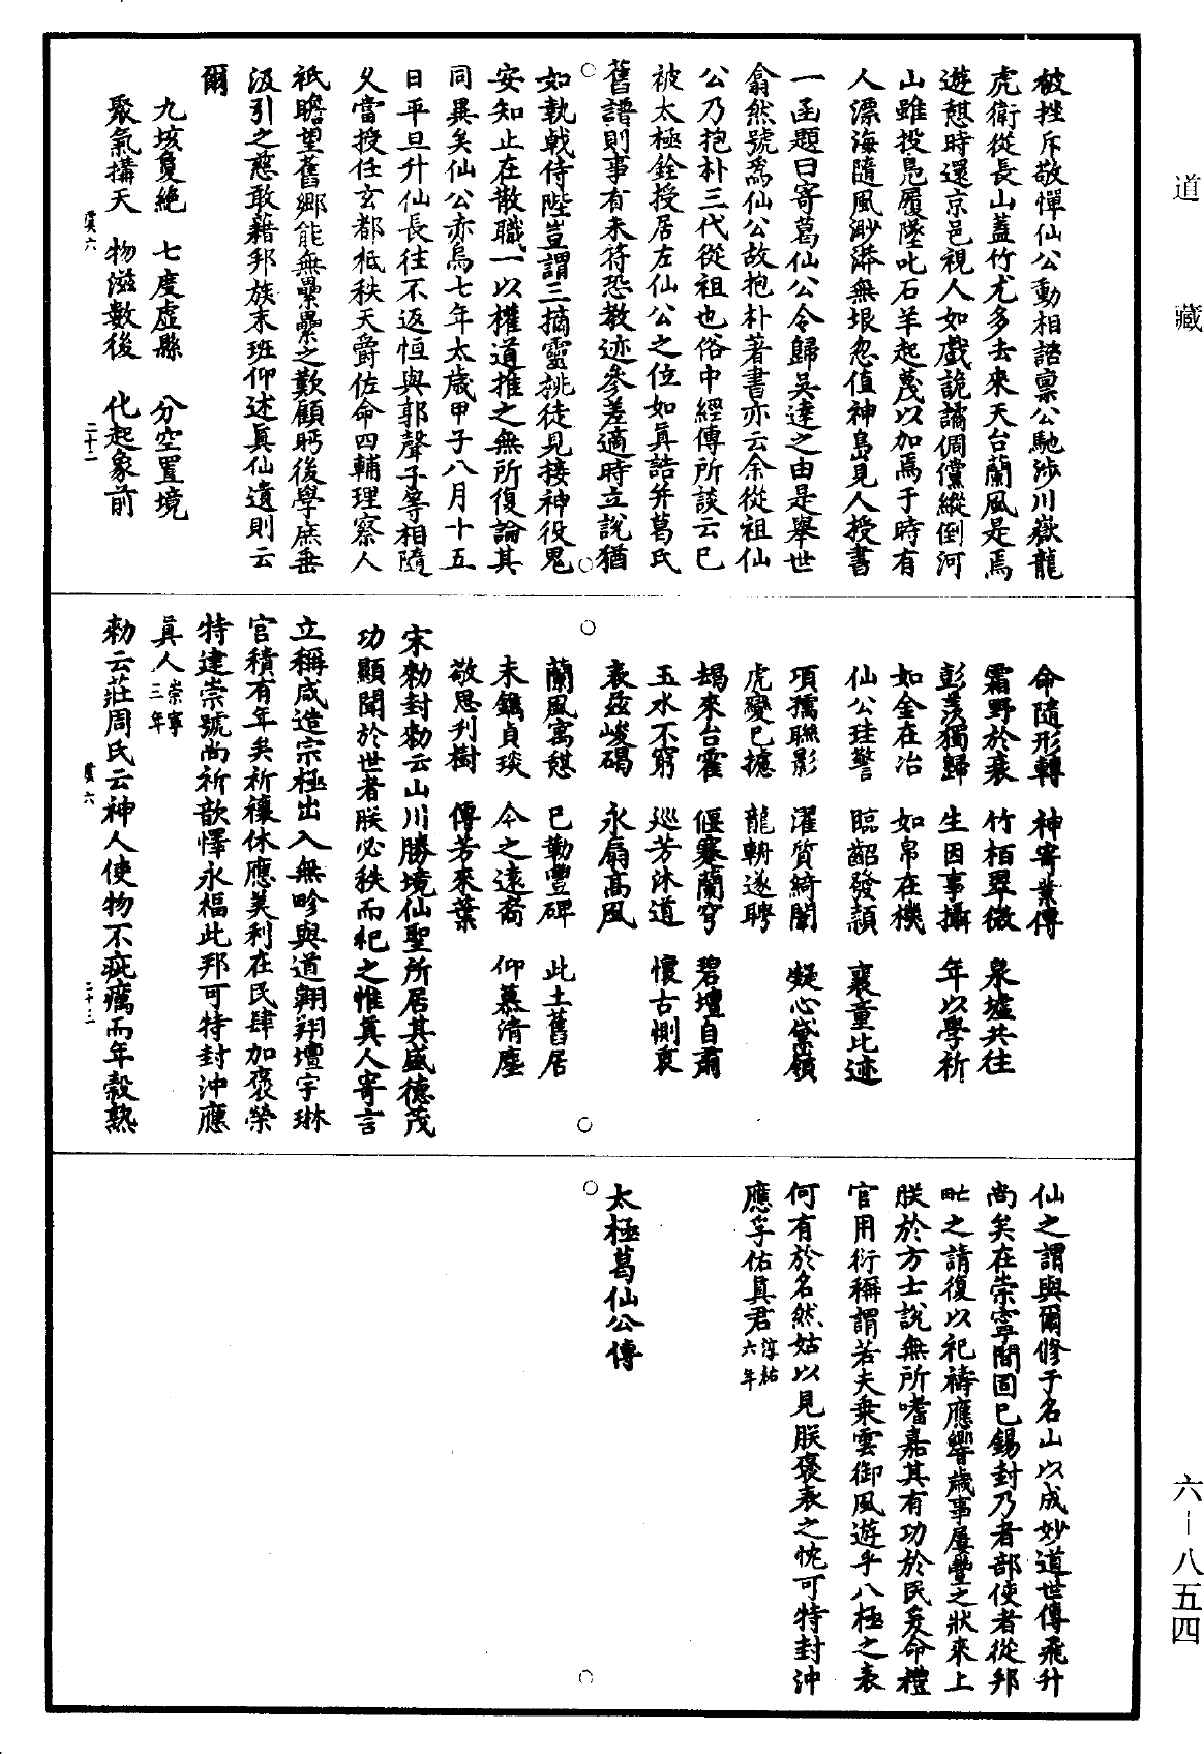 道藏
被挫斥敬憚仙公動相諮禀公馳涉川嶽龍
虎衛從長山蓋竹尤多去來天台蘭風是焉
遊憇時還京邑視人如戲詭譎倜儻縱倒河
山雖投鳧履墜叱石羊起蔑以加焉于時有
人漂海隨風渺漭無垠忽值神島見人授書
一函題曰寄葛仙公令歸吳達之由是舉世
翕然號爲仙公故抱朴著書亦云余從祖仙
公乃抱朴三代從祖也俗中經傳所談云已
被太極銓授居左仙公之位如眞誥并葛氏
舊譜則事有未符恐教迹參差適時立說猶
如執戟侍陛豈謂三摘靈挑徒見接神役鬼
安知止在散職一以權道推之無所復論其
同異矣仙公赤烏七年太歲甲子八月十五
日平旦升仙長往不返恒與郭聲子等相隨
久當授任玄都祇秩天爵佐命四輔理察人
祇瞻望舊鄉能無纍纍之歎顧眄後學庶垂
汲引之慈敢藉邦族末班仰述眞仙遺則云
爾
九垓夐絕　七度虛縣　分空置境
聚氣構天　物滋數後　化起象前
虞六　二十二
命隨形轉　神寄業傳
霜野於衰　竹柏翠微　泉墟共往
彭羨獨歸　生因事攝　年以學祈
如金在冶　如帛在機
仙公珪警　臨齠發穎　襄童比迹
項孺聯影　濯質綺闈　凝心黛嶺
虎變已摅　龍輈遂聘
朅來台霍　偃蹇蘭穹　碧壇自肅
玉水不窮　巡芳沐道　懷古惻衷
表茲峻碣　永扇高風
蘭風寓憇　已勒豐碑　此土舊居
未鐫貞琰　今之遠裔　仰慕清塵
敬思刋樹　傳芳來葉
宋勑封勑云山川勝境仙聖所居其盛德茂
功顯聞於世者朕必秩而祀之惟眞人寄言
立稱咸造宗極出入無畛與道翺翔壇宇琳
官積有年矣祈禳休應美利在民肆加褒榮
特建崇號尚祈歆懌永福此邦可特封沖應
眞人崇寧三年
勑云莊周氏云神人使物不疵癘而年穀熟
虞六　二十三
仙之謂與爾修于名山以成妙道世傳飛升
尚矣在崇寧間固已錫封乃者部使者從邦
甿之請復以祀禱應響歲事屢豐之狀來上
朕於方士說無所嗜嘉其有功於民爰命禮
官用衍稱謂若夫乗雲御風遊乎八極之表
何有於名然姑以見朕褒表之忱可特封沖
應孚佑眞君淳祐六年
太極葛仙公傳
六－八五四